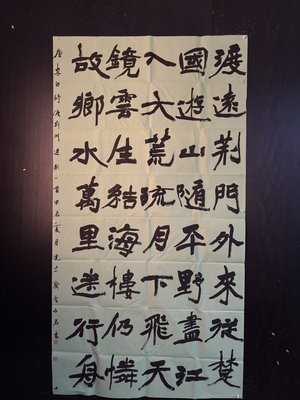 渡遠荆門外來從楚
國遊山隨平野盡江
入大荒流月下飛天
鏡雲生結海樓仍憐
故鄉水萬里送行舟
唐李白詩渡荆門送別一首 夏月 書